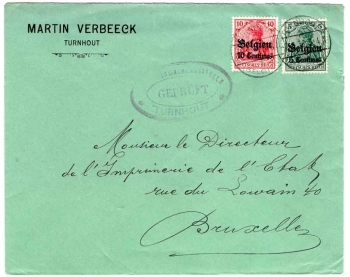 MARTIN VERBEECK
TURNHOUT
10 10
Belgien
10 Centimes
Belgien
5 Centimes
GEPRÜFT
TURNHOUT
Monsieur le Directeur
de l'Imprimerie de l'Etat
rue du Louvain 40
Bruxelles